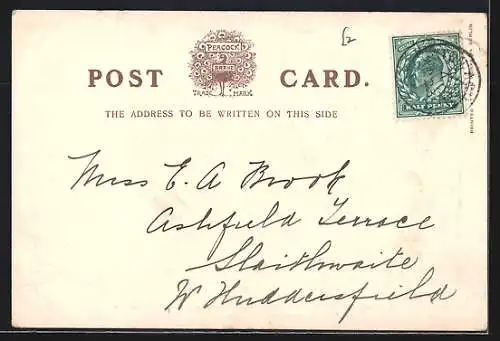 POST CARD.
PEACOCK
TRADE MARK
THE ADDRESS TO BE WRITTEN ON THIS SIDE
£2
HALF PENNY
Miss E. A Brook
Ashfield Terrace
Slaithwaite
W Huddersfield